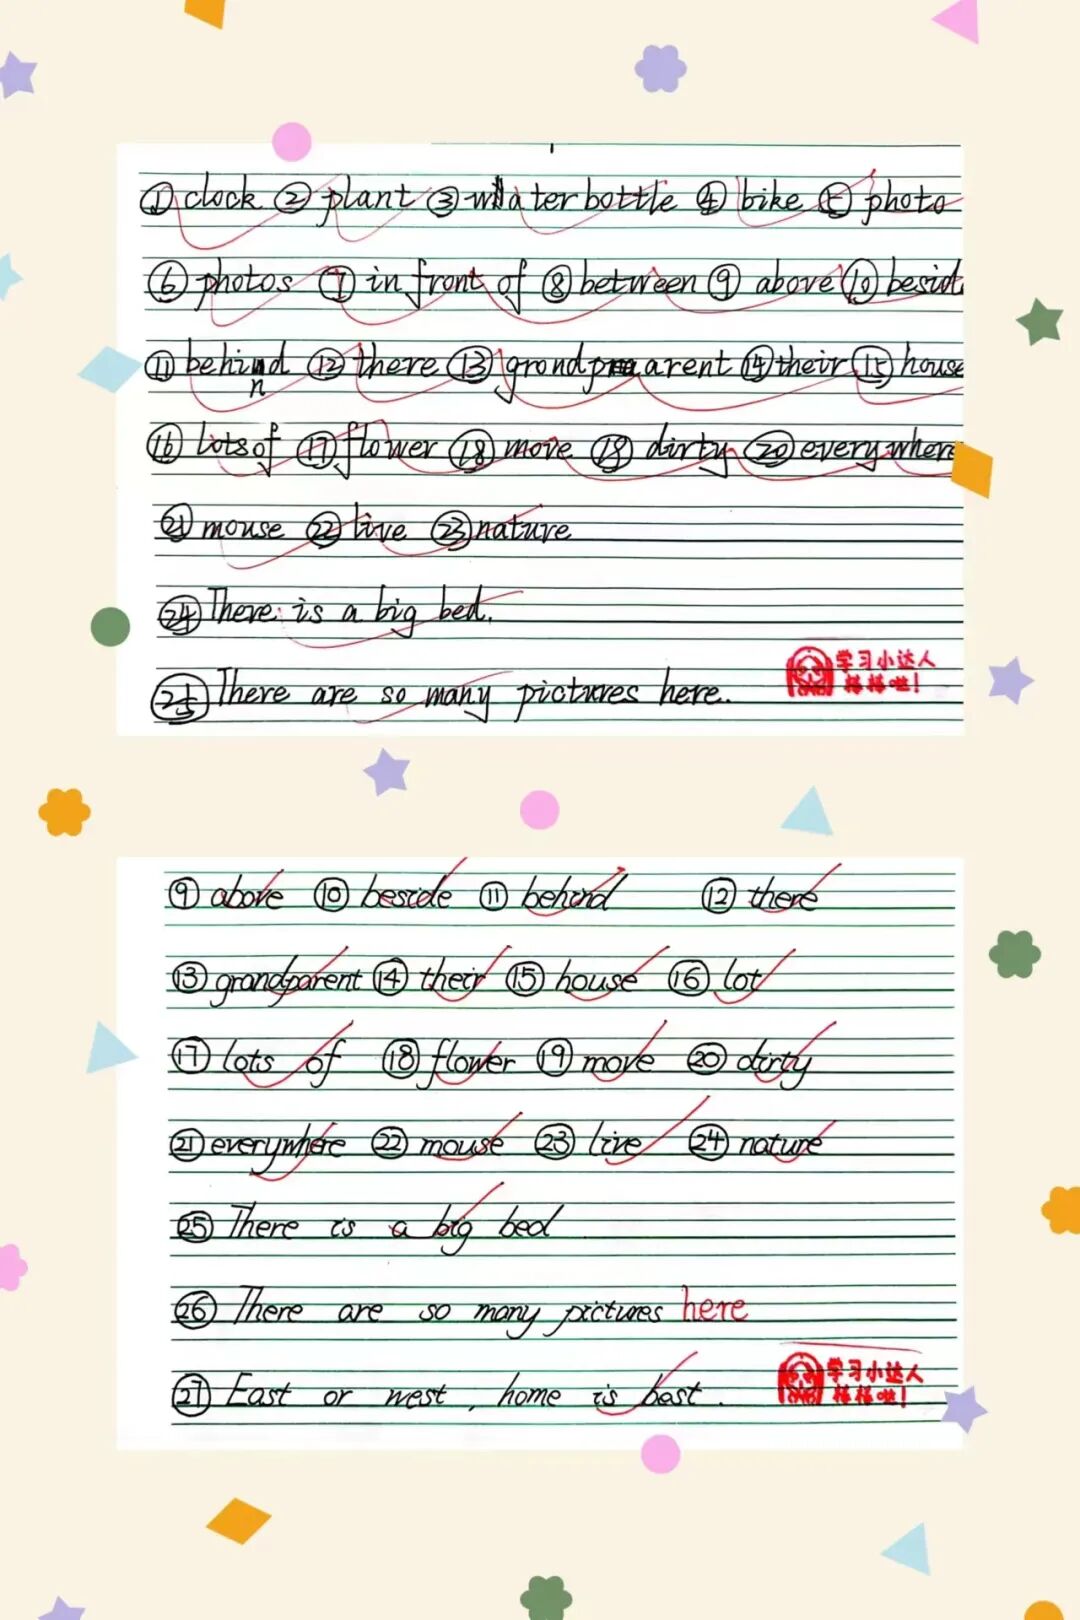 ① clock ② plant ③ water bottle ④ bike ⑤ photo
⑥ photos ⑦ in front of ⑧ between ⑨ above ⑩ beside
⑪ behind ⑫ there ⑬ grondparent ⑭ their ⑮ house
n
⑯ lots of ⑰ flower ⑱ move ⑲ dirty ⑳ everywhere
㉑ mouse ㉒ live ㉓ nature
㉔ There is a big bed.
㉕ There are so many pictures here.
学习小达人
棒棒哒!
⑨ above ⑩ beside ⑪ behind ⑫ there
⑬ grandparent ⑭ their ⑮ house ⑯ lot
⑰ lots of ⑱ flower ⑲ move ⑳ dirty
㉑ everywhere ㉒ mouse ㉓ live ㉔ nature
㉕ There is a big bed
㉖ There are so many pictures here
㉗ East or west , home is best .
学习小达人
棒棒哒!